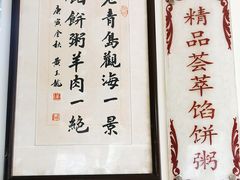 青島觀海一景
餡餅粥羊肉一絕
庚寅金秋 黄玉龍
精品荟萃馅饼粥